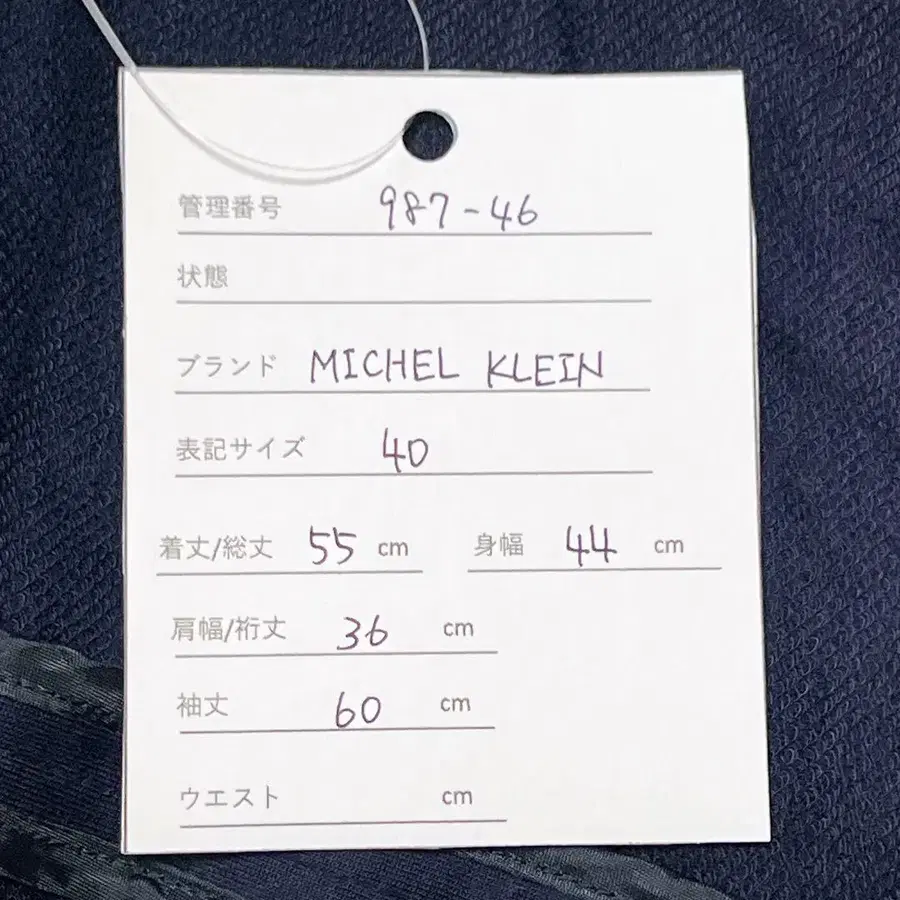 管理番号 987-46
状態
ブランド MICHEL KLEIN
表記サイズ 40
着丈/総丈 55 cm 身幅 44 cm
肩幅/裄丈 36 cm
袖丈 60 cm
ウエスト cm